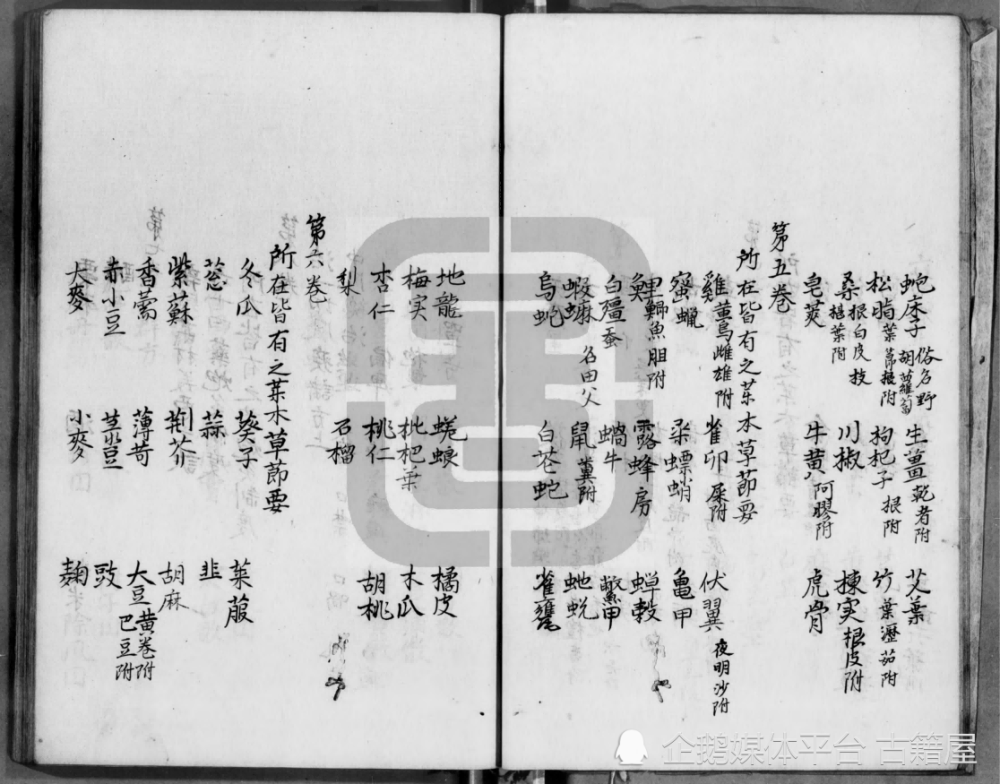 蛇床子 俗名野胡蘿蔔 生薑 乾者附 艾葉
松脂 葉節根附 枸杞子 根附 竹葉 瀝茹附
桑根白皮 枝葉附 川椒 楝实 根皮附
皂莢 牛黄 阿膠附 虎骨
第五卷
所在皆有之草木草節要
雞 雌雄附 雀卯 屎附 伏翼 夜明沙附
蜜蠟 桑螵蛸 亀甲
鯽魚胆附 露蜂房 蝉殼
白殭蚕 蝸牛 鱉甲
蝦蟇 名田父 鼠 糞附 蛇蛻
烏蛇 白花蛇 雀甕
地龍 蜣蜋 橘皮
梅实 枇杷葉 木瓜
杏仁 桃仁 胡桃
梨 石榴
第六卷
所在皆有之草木草節要
冬瓜 葵子 菜菔
葱 蒜 韭
紫蘇 荆芥 胡麻
香薷 薄苛 大豆黄卷附 巴豆附
赤小豆 豉
大麥 小麥 麹
企鹅媒体平台 古籍屋